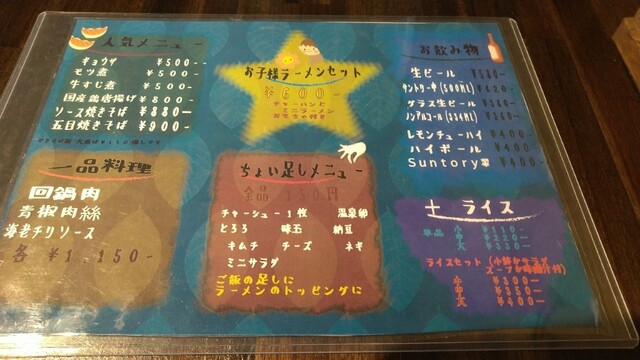 人気メニュー
ギョウザ ¥500-
モツ煮 ¥500-
牛すじ煮 ¥500-
国産鶏唐揚げ ¥800-
ソース焼きそば ¥880-
五目焼きそば ¥900-
お子様ラーメンセット
¥600-
チャーハンと
ミニラーメン
おもちゃ付き
お飲み物
生ビール ¥580-
サントリー中(500ML) ¥620-
グラス生ビール
ノンアルコール(334ML)
レモンチューハイ ¥400-
ハイボール ¥400-
Suntory翠 ¥400-
一品料理
回鍋肉
青椒肉絲
海老チリソース
各 ¥1.150-
ちょい足しメニュー
全品 150円
チャーシュー1枚 温泉卵
とろろ 味玉 納豆
キムチ チーズ ネギ
ミニサラダ
ご飯の足しに
ラーメンのトッピングに
± ライス
単品 小 ¥110-
中 ¥220-
大 ¥330-
ライスセット(小鉢や生ラダ
小 ¥300-
中 ¥350-
大 ¥400-